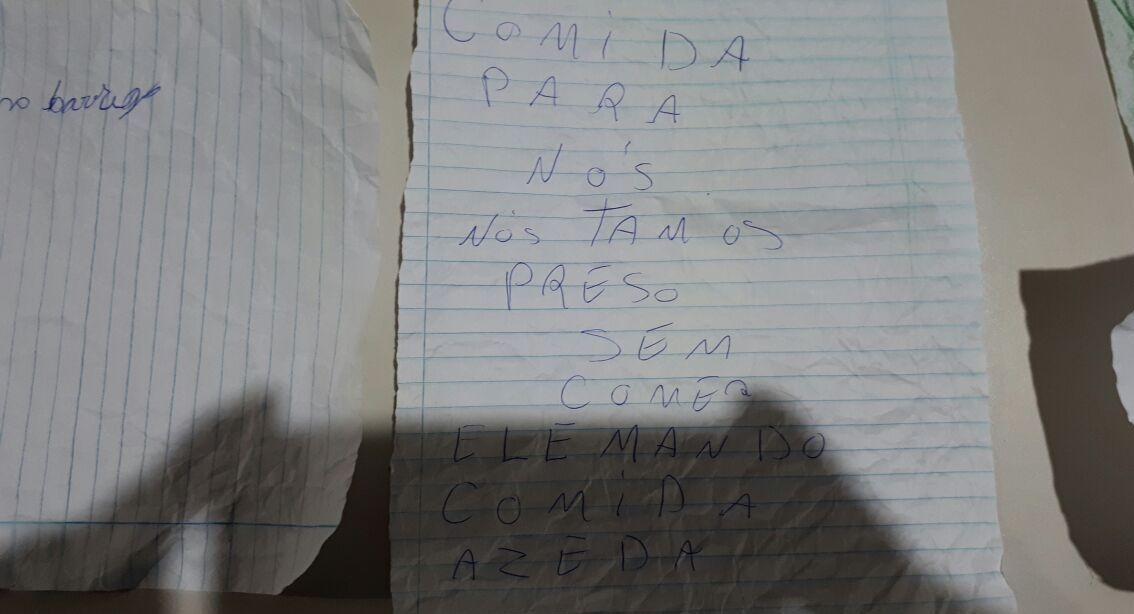 no barriga
COMIDA
PARA
NÓS
NÓS TAMOS
PRESO
SEM
COMER
ELE MANDO
COMIDA
AZEDA